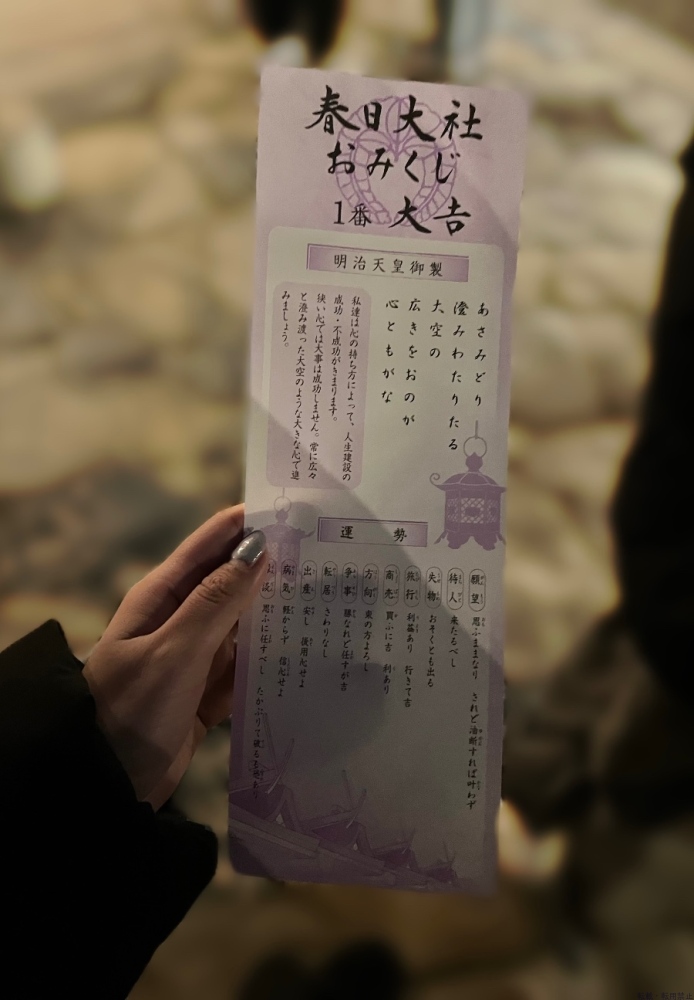 春日大社
おみくじ
1番 大吉
明治天皇御製
あさみどり
澄みわたりたる
大空の
広きをおのが
心ともがな
私達は心の持ち方によって、人生建設の
成功・不成功がきまります。
狭い心では大事は成功しません。常に広々
と澄み渡った大空のような大きな心で進
みましょう。
運勢
願望 思ふままなり されど油断すれば叶わず
待人 来たるべし
失物 おそくとも出る
旅行 利益あり 行きて吉
商売 買ふに吉 利あり
方向 東の方よろし
争事 勝なれど任すが吉
転居 さわりなし
出産 安し 後用心せよ
病気 軽からず 信心せよ
思ふに任すべし たかぶりて破るる